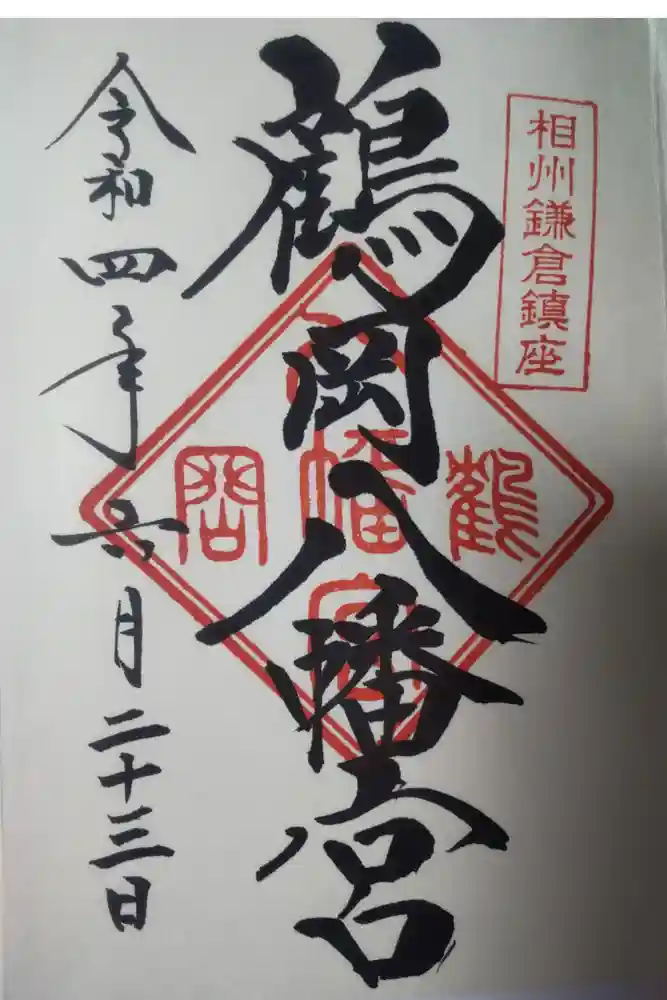 相州鎌倉鎮座
鶴岡八幡宮
鶴岡八幡宮
令和四年六月二十三日